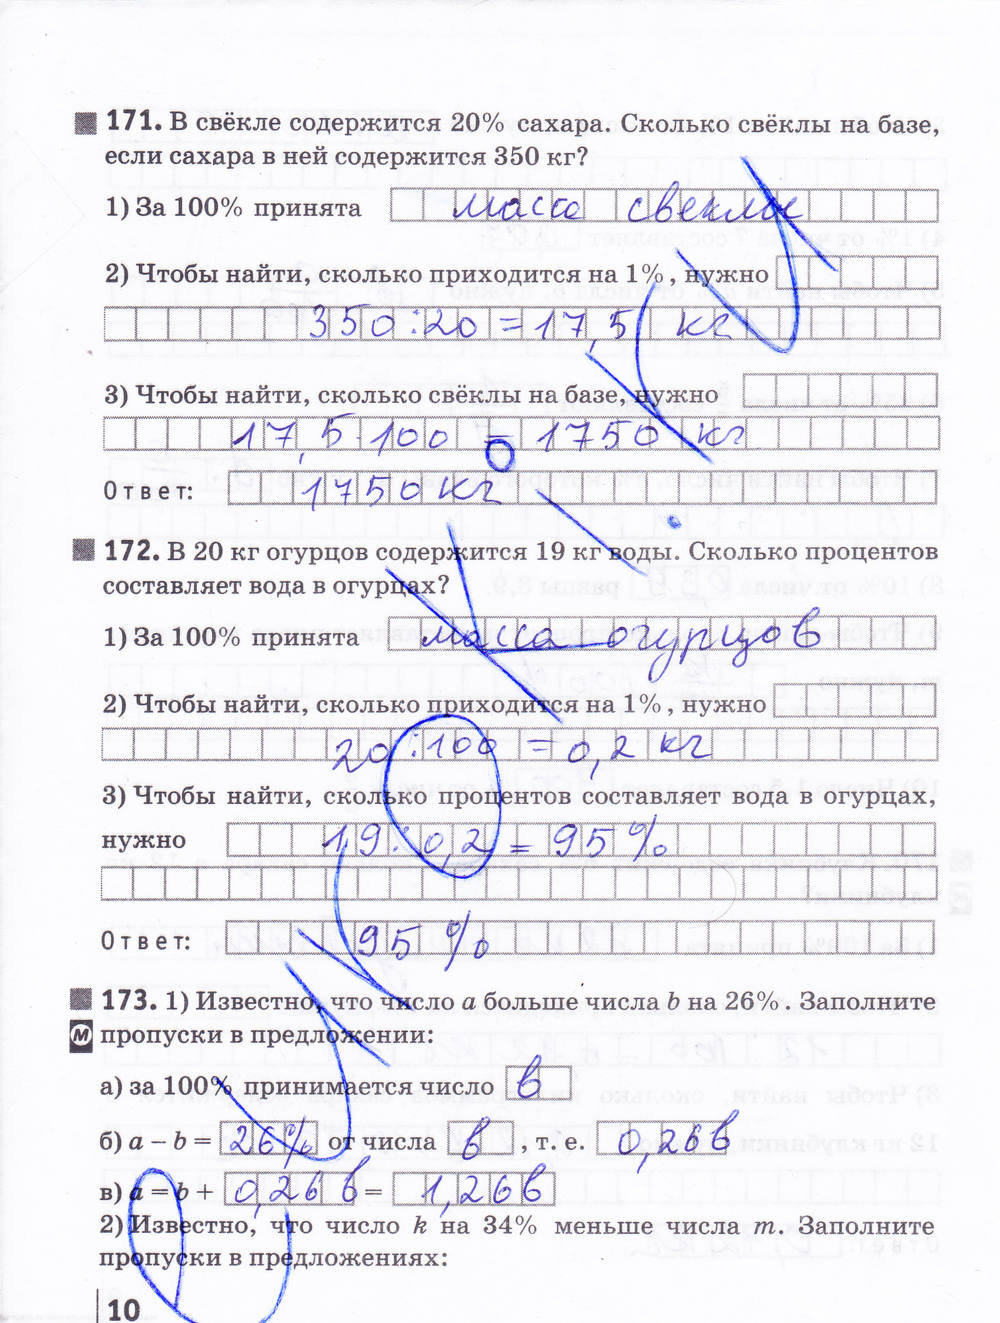 171. В свёкле содержится 20% сахара. Сколько свёклы на базе,
если сахара в ней содержится 350 кг?
1) За 100% принята масса свеклы
2) Чтобы найти, сколько приходится на 1%, нужно
350:20 = 17,5 кг
3) Чтобы найти, сколько свёклы на базе, нужно
17,5·100 = 1750 кг
Ответ: 1750 кг
172. В 20 кг огурцов содержится 19 кг воды. Сколько процентов
составляет вода в огурцах?
1) За 100% принята масса огурцов
2) Чтобы найти, сколько приходится на 1%, нужно
20:100 = 0,2 кг
3) Чтобы найти, сколько процентов составляет вода в огурцах,
нужно 19:0,2 = 95%
Ответ: 95%
173. 1) Известно, что число a больше числа b на 26%. Заполните
М пропуски в предложении:
а) за 100% принимается число в
б) a – b = 26% от числа в, т. е. 0,26в
в) a = b + 0,26в = 1,26в
2) Известно, что число k на 34% меньше числа m. Заполните
пропуски в предложениях:
10